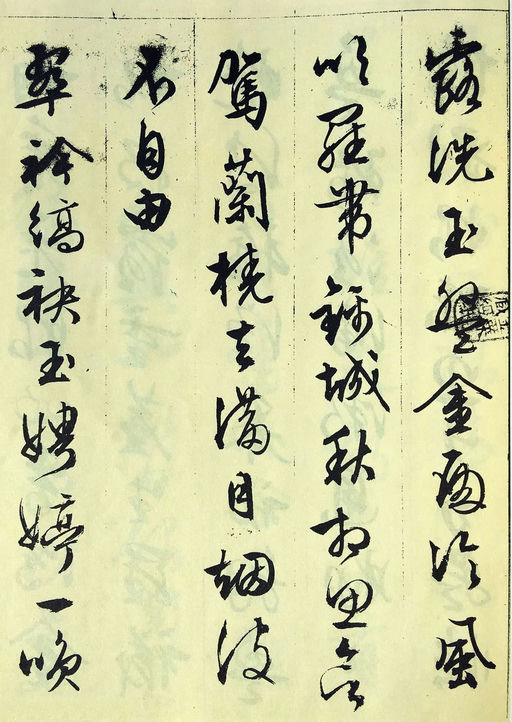 露洗玉盤金殿冷風
吹羅帶錦城秋相思欲
駕蘭橈去滿目烟波
不自由
翠衿縞袂玉娉婷一喚